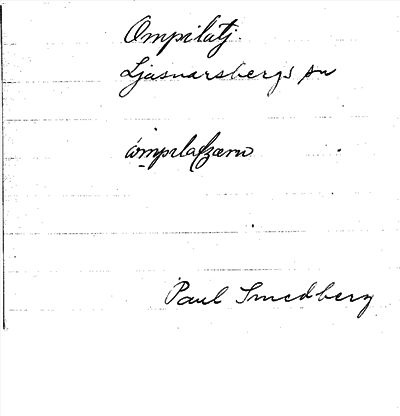 Ompilatj.
Ljusnarsbergs sn
Paul Smedberg